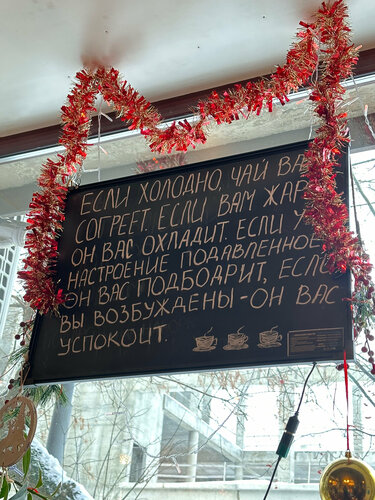 ЕСЛИ ХОЛОДНО, ЧАЙ ВА
СОГРЕЕТ. ЕСЛИ ВАМ ЖАР
ОН ВАС ОХЛАДИТ. ЕСЛИ У
НАСТРОЕНИЕ ПОДАВЛЕННОЕ
ОН ВАС ПОДБОДРИТ, ЕСЛИ
ВЫ ВОЗБУЖДЕНЫ - ОН ВАС
УСПОКОИТ.